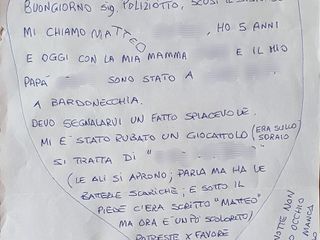 BUONGIORNO Sig. POLIZIOTTO, SCUSI IL
MI CHIAMO MATTEO , HO 5 ANNI
E OGGI CON LA MIA MAMMA E IL MIO
PAPÀ SONO STATO A
A BARDONECCHIA.
DEVO SEGNALARVI UN FATTO SPIACEVOLE.
MI È STATO RUBATO UN GIOCATTOLO (ERA SULLO SDRAIO
SI TRATTA DI "
(LE ALI SI APRONO; PARLA MA HA LE
BATTERIE SCARICHE; E SOTTO IL
PIEDE C'ERA SCRITTO "MATTEO"
MA ORA È UN PO' SCOLORITO)
POTRESTE X FAVORE
NOTTE NON
OCCHIO
MANCA